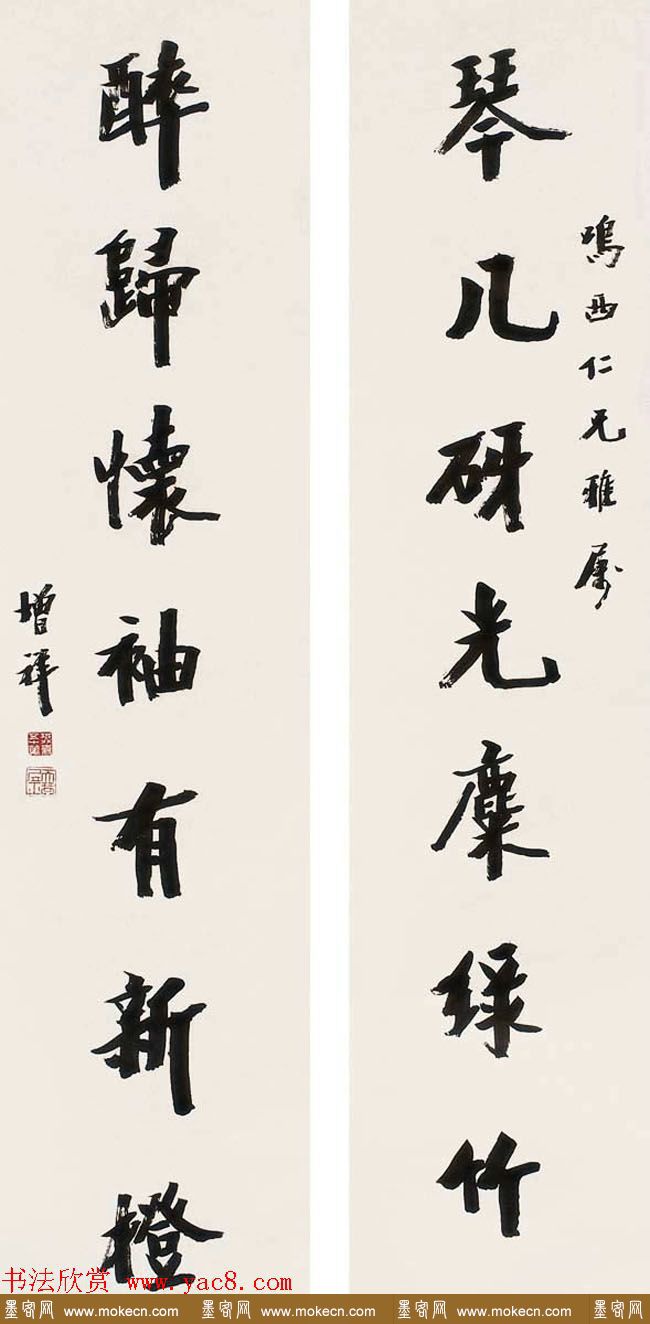 鳴西仁兄雅屬
琴几砑光麋緑竹
醉歸懷袖有新橙
增祥
书法欣赏 www.yac8.com
墨客网 www.mokecn.com 墨客网 www.mokecn.com 墨客网 www.mokecn.com 墨客网